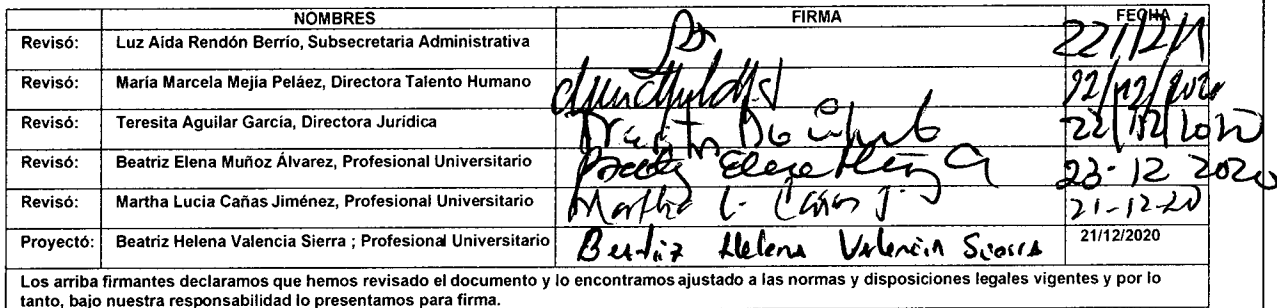 NOMBRES FIRMA FECHA
Revisó: Luz Aida Rendón Berrío, Subsecretaria Administrativa
Revisó: María Marcela Mejía Peláez, Directora Talento Humano 22/12/2020
Revisó: Teresita Aguilar García, Directora Jurídica 22/12/2020
Revisó: Beatriz Elena Muñoz Álvarez, Profesional Universitario 23-12 2020
Revisó: Martha Lucia Cañas Jiménez, Profesional Universitario Martha L. Cañas J. 21-12-20
Proyectó: Beatriz Helena Valencia Sierra ; Profesional Universitario Beatriz Helena Valencia Sierra 21/12/2020
Los arriba firmantes declaramos que hemos revisado el documento y lo encontramos ajustado a las normas y disposiciones legales vigentes y por lo
tanto, bajo nuestra responsabilidad lo presentamos para firma.